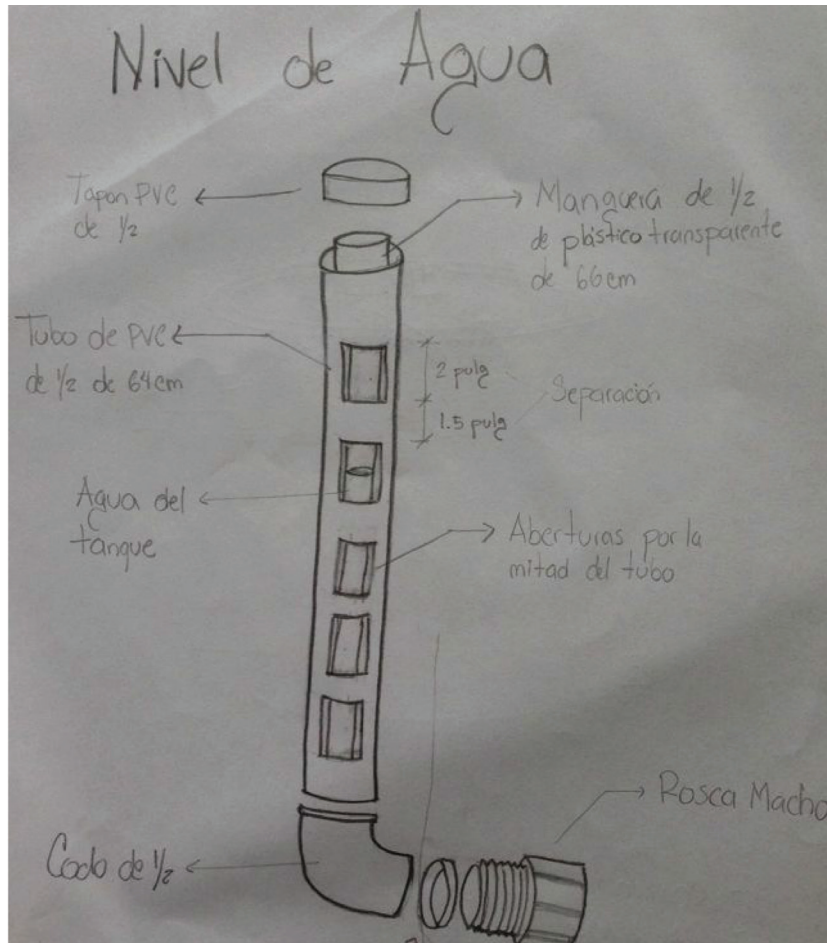 Nivel de Agua
Tapon PVC
de 1/2
Manguera de 1/2
de plástico transparente
de 66cm
Tubo de PVC
de 1/2 de 64cm
2 pulg
Separación
1.5 pulg
Agua del
tanque
Aberturas por la
mitad del tubo
Rosca Macho
Codo de 1/2